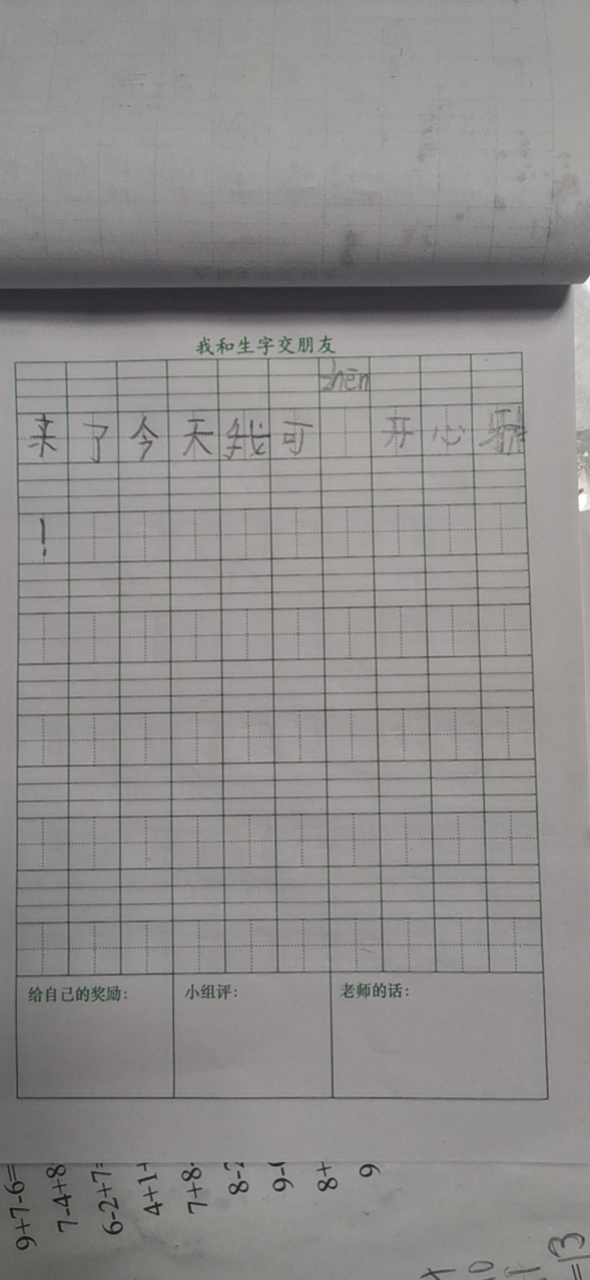 我和生字交朋友
zhēn
来了今天我可 开心
!
给自己的奖励: 小组评: 老师的话:
9+7-6=
7-4+8
6-2+7=
4+1+
7+8
8-
9-
8+
9
=13